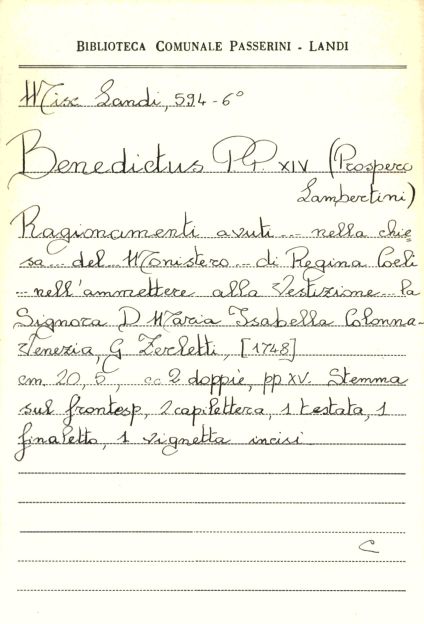 BIBLIOTECA COMUNALE PASSERINI - LANDI
Misc Landi, 594 - 6°
Benedictus PP. XIV (Prospero
Lambertini)
Ragionamenti avuti... nella chie-
sa... del Monistero... di Regina Coeli
... nell'ammettere alla Vestizione... la
Signora D Maria Isabella Colonna-
Venezia, G Zerletti, [1748]
cm. 20, 5, cc 2 doppie, pp XV. Stemma
sul frontesp, 2 capilettera, 1 testata, 1
finaletto, 1 vignetta incisi
C